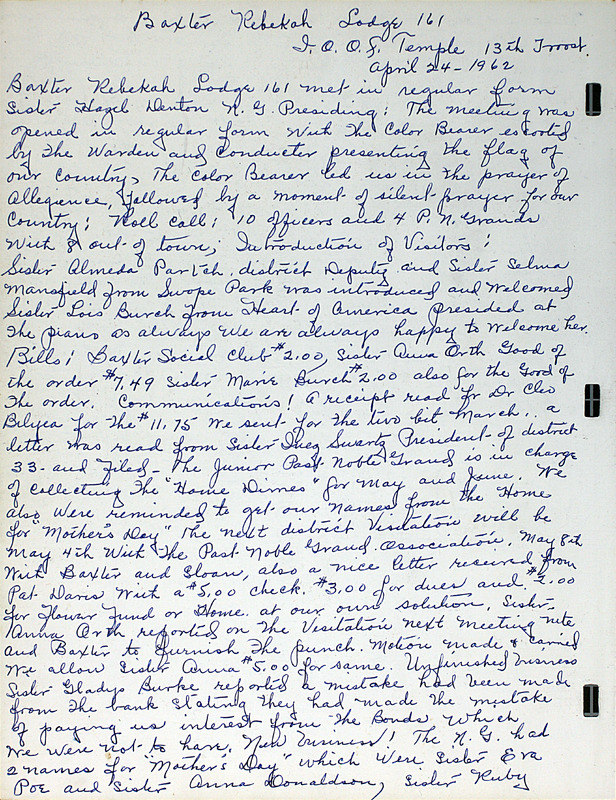 Baxter Rebekah Lodge 161
I.O.O.F. Temple 13th Troost.
April 24-1962
Baxter Rebekah Lodge 161 met in regular form
Sister Hazel Denton N.G. Presiding; The meeting was
opened in regular form with the Color Bearer escorted
by the Warden and Conductor presenting the flag of
our Country, The Color Bearer led us in the prayer of
Allegience, followed by a moment of silent prayer for our
Country; Roll call; 10 officers and 4 P.N. Grands
with 8 out of town; Introduction of Visitors;
Sister Almeda Partch, district Deputy and Sister Selma
Mansfield from Swope Park was introduced and Welcomed
Sister Lois Burch from Heart of America presided at
the piano as always We are always happy to welcome her.
Bills; Baxter Social Club #2.00, Sister Anna Orth Good of
the order #7.49 Sister Marie Burch #2.00 also for the Good of
the order. Communications! A receipt read fr Dr Cleo
Belyea for the #11.75 We sent for the two bit March,. a
letter was read from Sister Inez Swartz President of district
33- and Filed- The Junior Past Noble Grand is in charge
of collecting the "Home Dimes" for May and June. We
also were reminded to get our names from the Home
for "Mother's Day" The next district Visitation will be
May 4th With The Past Noble Grand Association, May 8th
With Baxter and Sloan, also a nice letter received from
Pat Davis with a #5.00 check. #3.00 for dues and #2.00
for Flower Fund or Home at our own solution, Sister
Anna Orth reported on the Visitation next meeting nite
and Baxter to furnish the punch. Motion made & carried
We allow Sister Anna #5.00 for same. Unfinished business
Sister Gladys Burke reported a mistake had been made
from the bank stating they had made the mistake
of paying us interest from the Bonds, which
we were not to have, New business! The N.G. had
2 names for "Mother's Day" which were Sister Eva
Poe and Sister Anna Donaldson, Sister Ruby